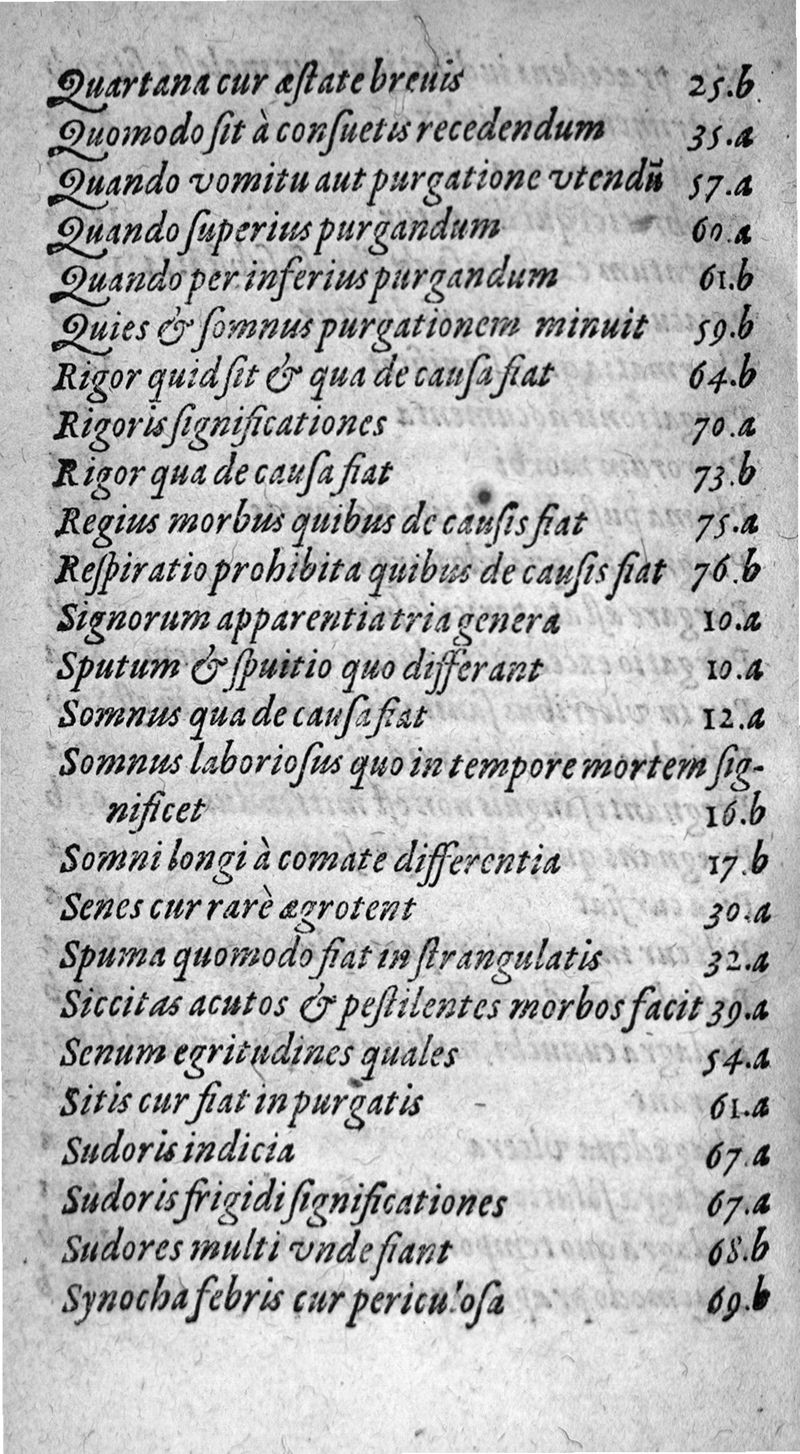 Quartana cur æſtate breuis 25.b
Quomodo ſit à conſuetis recedendum 35.a
Quando vomitu aut purgatione vtendū 57.a
Quando ſuperius purgandum 60.a
Quando per inferius purgandum 61.b
Quies & ſomnus purgationem minuit 59.b
Rigor quid ſit & qua de cauſa fiat 64.b
Rigoris ſignificationes 70.a
Rigor qua de cauſa fiat 73.b
Regius morbus quibus de cauſis fiat 75.a
Reſpiratio prohibita quibus de cauſis fiat 76.b
Signorum apparentia tria genera 10.a
Sputum & ſpuitio quo differant 10.a
Somnus qua de cauſa fiat 12.a
Somnus laborioſus quo in tempore mortem ſig-
nificet 16.b
Somni longi à comate differentia 17.b
Senes cur rarè ægrotent 30.a
Spuma quomodo fiat in ſtrangulatis 32.a
Siccitas acutos & peſtilentes morbos facit 39.a
Senum egritudines quales 54.a
Sitis cur fiat in purgatis 61.a
Sudoris indicia 67.a
Sudoris frigidi ſignificationes 67.a
Sudores multi vnde fiant 68.b
Synocha febris cur periculoſa 69.b